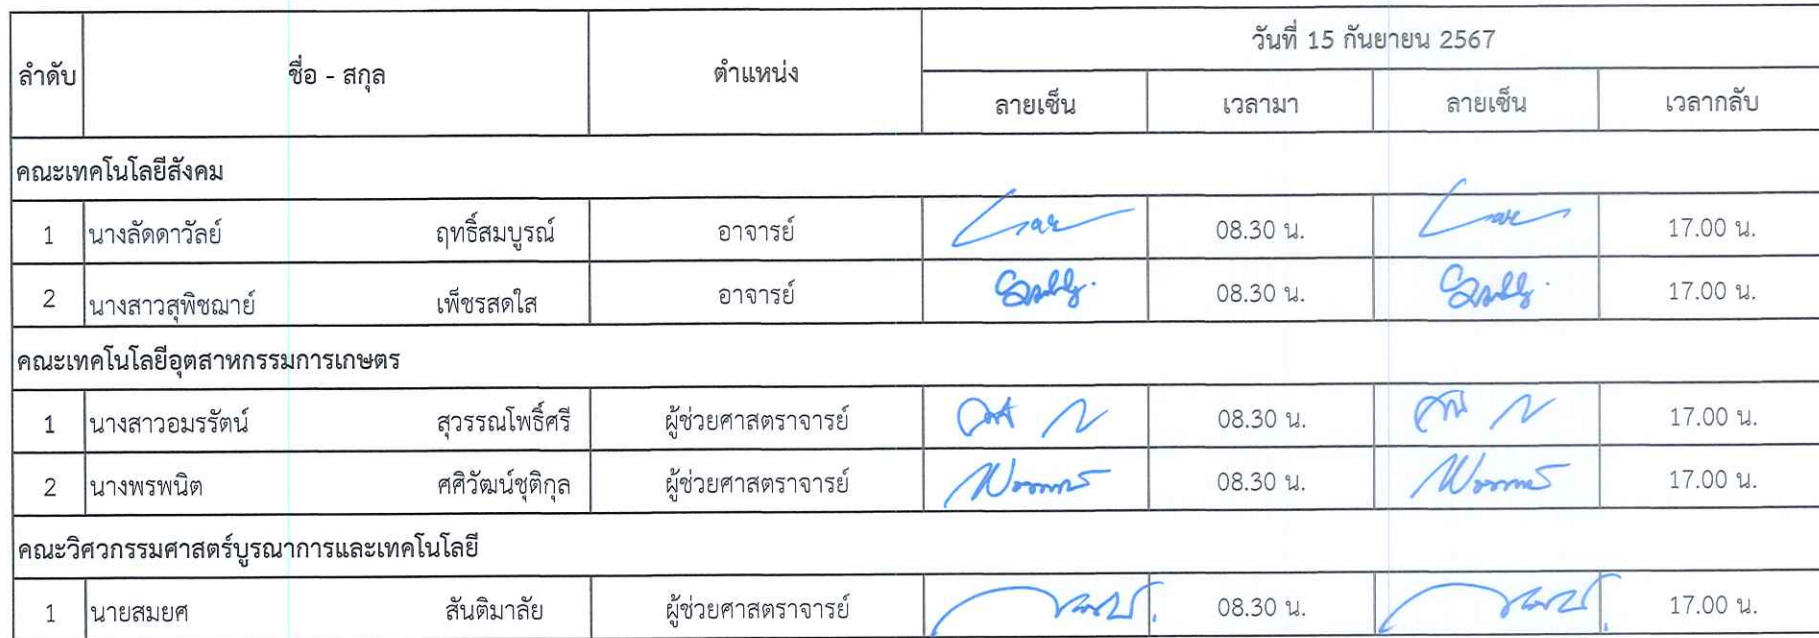 ลำดับ ชื่อ - สกุล ตำแหน่ง วันที่ 15 กันยายน 2567
ลายเซ็น เวลามา ลายเซ็น เวลากลับ
คณะเทคโนโลยีสังคม
1 นางลัดดาวัลย์ ฤทธิ์สมบูรณ์ อาจารย์ 08.30 น. 17.00 น.
2 นางสาวสุพิชฌาย์ เพ็ชรสดใส อาจารย์ 08.30 น. 17.00 น.
คณะเทคโนโลยีอุตสาหกรรมการเกษตร
1 นางสาวอมรรัตน์ สุวรรณโพธิ์ศรี ผู้ช่วยศาสตราจารย์ 08.30 น. 17.00 น.
2 นางพรพนิต ศศิวัฒน์ชุติกุล ผู้ช่วยศาสตราจารย์ 08.30 น. 17.00 น.
คณะวิศวกรรมศาสตร์บูรณาการและเทคโนโลยี
1 นายสมยศ สันติมาลัย ผู้ช่วยศาสตราจารย์ 08.30 น. 17.00 น.